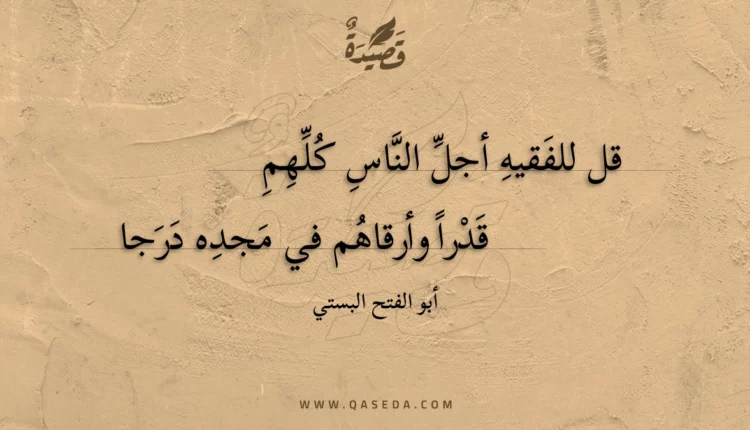 قَصِيدَةٌ
قل للفَقيهِ أجلِّ النَّاسِ كُلِّهِمِ
قَدْراً وأرقاهُم في مَجدِه دَرَجا
أبو الفتح البستي
WWW.QASEDA.COM